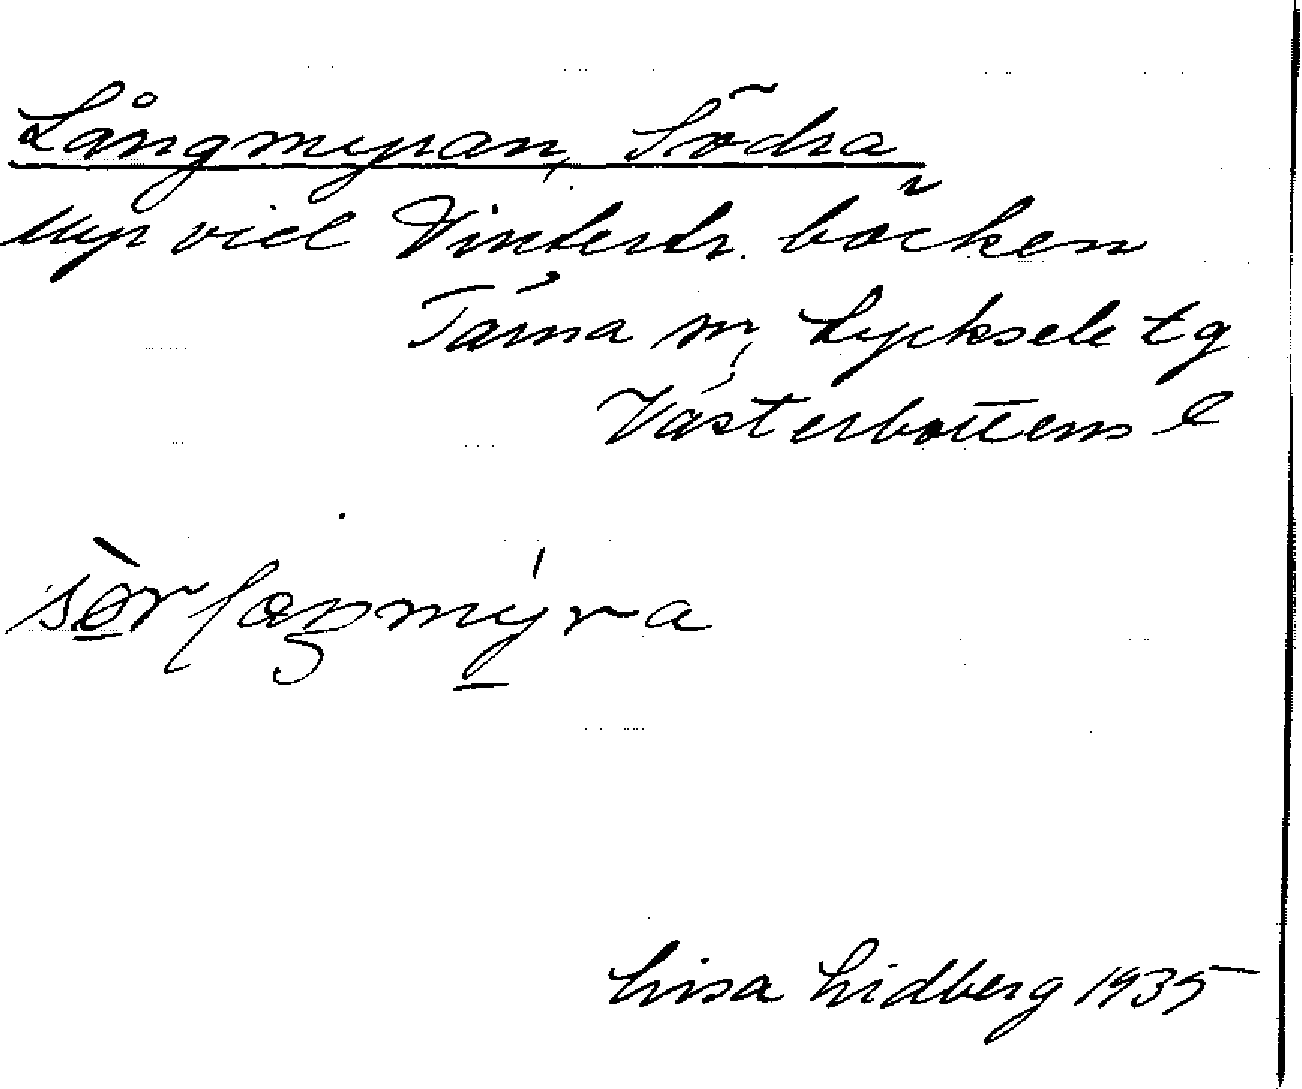 Långmyran, Södra
Myr vid Vintertr. bäcken
Tärna sn, Lycksele tg
Västerbottens l
Lisa Lidberg 1935